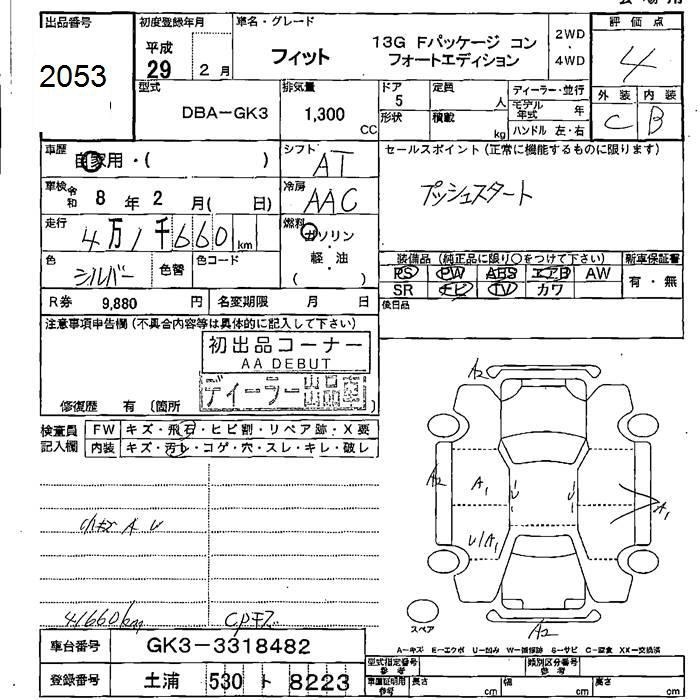 出品番号
2053
初度登録年月
平成
29 2月
車名・グレード
フィット
13G Fパッケージ コン
フォートエディション
2WD
・
4WD
評価点
4
外装 内装
C B
型式
DBA-GK3
排気量
1,300
CC
ドア
5
定員
人
形状
積載
kg
ディーラー・並行
モデル年式 年
ハンドル 左・右
車歴
自家用・( )
シフト
AT
セールスポイント(正常に機能するものに限ります)
プッシュスタート
車検 令和 8 年 2 月( 日)
冷房
AAC
走行
4万1千660 km
燃料
ガソリン
・
軽・油
( )
色
シルバー
色替
色コード
装備品(純正品に限り○をつけて下さい)
PS PW ABS エアB AW
SR ナビ TV カワ
新車保証書
有・無
R券 9,880 円
名変期限 月 日
後日品
注意事項申告欄(不具合内容等は具体的に記入して下さい)
初出品コーナー
AA DEBUT
ディーラー出品車
修復歴 有 〔箇所 〕
検査員
記入欄
FW キズ・飛石・ヒビ割・リペア跡・X要
内装 キズ・汚レ・コゲ・穴・スレ・キレ・破レ
小キズ A U
41660km
A2
A2
A1
U
U
U/A1
A1
A2
スペア
A-キズ E-エクボ U-凹み W-補修跡 S-サビ C-腐食 XX-交換済
車台番号 GK3-3318482
登録番号 土浦 530 ト 8223
型式指定番号
参考
類別区分番号
参考
車庫証明用
参考
長さ cm 幅 cm 高さ cm